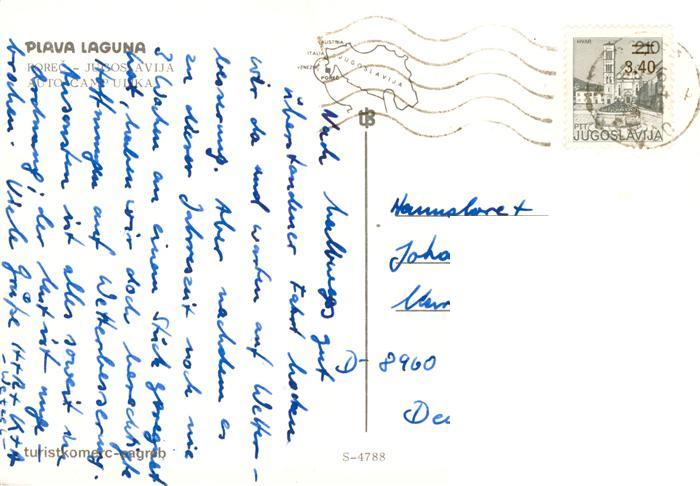 PLAVA LAGUNA
POREČ – JUGOSLAVIJA
AUTOCAMP ULIKA
AUSTRIJA
ITALIA
VENEZIA
POREČ
JUGOSLAVIJA
HVAR
2,10
3,40
PTT
JUGOSLAVIJA
Nach halbwegs gut
überstandener Fahrt hocken
wir da und warten auf Wetter-
besserung. Aber nachdem es
zu dieser Jahreszeit noch nie
3 Wochen an einem Stück geregnet
hat, haben wir doch berechtigte
Hoffnungen auf Wetterbesserung.
Ansonsten ist alles soweit in
Ordnung, der Mut ist unge-
brochen. Viele Grüße
Hannelore +
Joha
D- 8960
Deu
turistkomerc-zagreb
S-4788